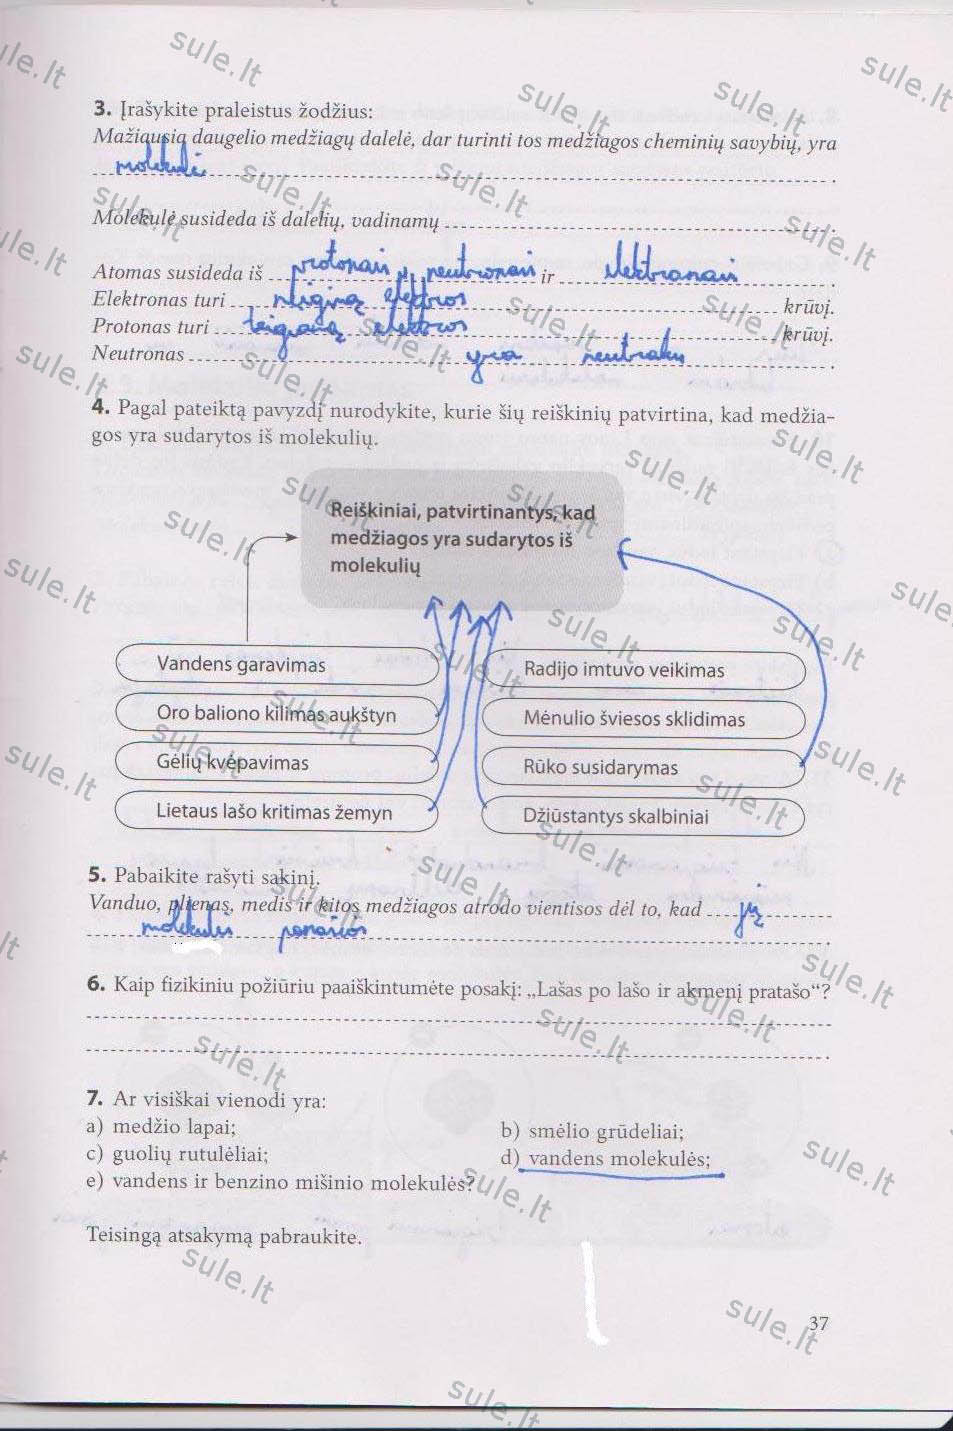 3. Įrašykite praleistus žodžius:
Mažiausia daugelio medžiagų dalelė, dar turinti tos medžiagos cheminių savybių, yra
molekulė.
Molekulė susideda iš dalelių, vadinamų
Atomas susideda iš protonais neutronais ir elektronais
Elektronas turi neigiamą elektros krūvį.
Protonas turi teigiamą elektros krūvį.
Neutronas yra neutralus.
4. Pagal pateiktą pavyzdį nurodykite, kurie šių reiškinių patvirtina, kad medžia-
gos yra sudarytos iš molekulių.
Reiškiniai, patvirtinantys, kad
medžiagos yra sudarytos iš
molekulių
Vandens garavimas
Radijo imtuvo veikimas
Oro baliono kilimas aukštyn
Mėnulio šviesos sklidimas
Gėlių kvėpavimas
Rūko susidarymas
Lietaus lašo kritimas žemyn
Džiūstantys skalbiniai
5. Pabaikite rašyti sakinį.
Vanduo, plienas, medis ir kitos medžiagos atrodo vientisos dėl to, kad jų
molekulės panašios
6. Kaip fizikiniu požiūriu paaiškintumėte posakį: „Lašas po lašo ir akmenį pratašo“?
7. Ar visiškai vienodi yra:
a) medžio lapai;
b) smėlio grūdeliai;
c) guolių rutulėliai;
d) vandens molekulės;
e) vandens ir benzino mišinio molekulės?
Teisingą atsakymą pabraukite.
37
sule.lt